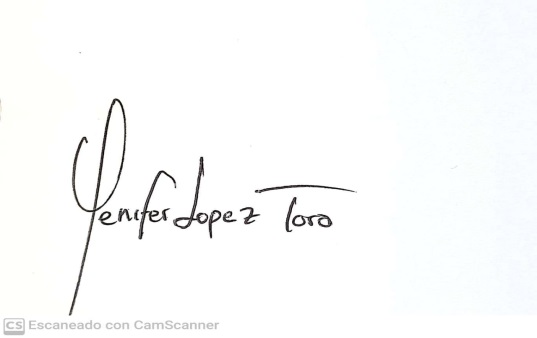 Yenifer Lopez Toro
CS Escaneado con CamScanner